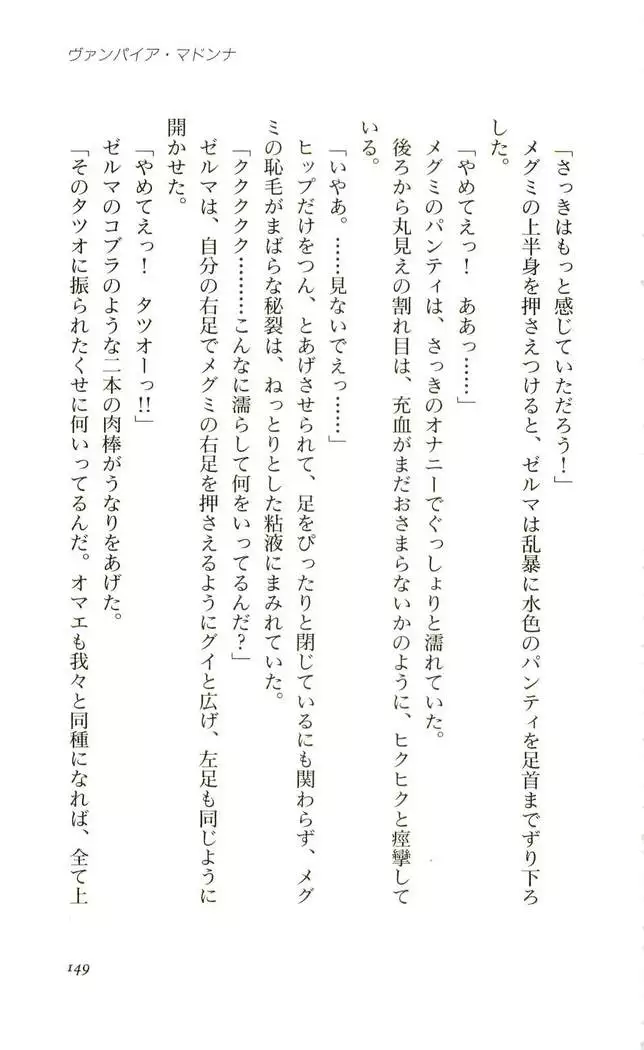 ヴァンパイア・マドンナ
「さっきはもっと感じていただろう！」
メグミの上半身を押さえつけると、ゼルマは乱暴に水色のパンティを足首までずり下ろ
した。
「やめてえっ！　ああっ……」
メグミのパンティは、さっきのオナニーでぐっしょりと濡れていた。
後ろから丸見えの割れ目は、充血がまだおさまらないかのように、ヒクヒクと痙攣して
いる。
「いやあ。……見ないでえっ……」
ヒップだけをつん、とあげさせられて、足をぴったりと閉じているにも関わらず、メグ
ミの恥毛がまばらな秘裂は、ねっとりとした粘液にまみれていた。
「ククククク………こんなに濡らして何をいってるんだ？」
ゼルマは、自分の右足でメグミの右足を押さえるようにグイと広げ、左足も同じように
開かせた。
「やめてえっ！　タツオーっ!!」
ゼルマのコブラのような二本の肉棒がうなりをあげた。
「そのタツオに振られたくせに何いってるんだ。オマエも我々と同種になれば、全て上
149